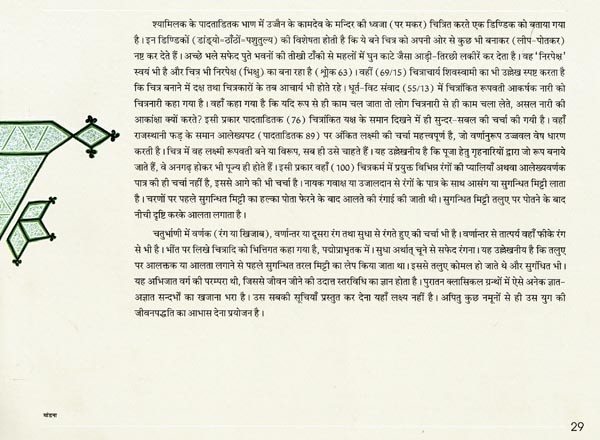 श्यामिलक के पादताडितक भाण में उज्जैन के कामदेव के मन्दिर की ध्वजा (पर मकर) चित्रित करते एक डिण्डिक को बताया गया
है। इन डिण्डिकों (डांड्यो=ठाँठों=पशुतुल्य) की विशेषता होती है कि ये बने चित्र को अपनी ओर से कुछ भी बनाकर (लीप-पोतकर)
नष्ट कर देते हैं। अच्छे भले सफेद पुते भवनों की तीखी टाँकी से महलों में घुन काटे जैसा आड़ी-तिरछी लकीरें कर देता है। वह 'निरपेक्ष'
स्वयं भी है और चित्र भी निरपेक्ष (भिक्षु) का बना रहा है (श्लोक 63)। वहीं (69/15) चित्राचार्य शिवस्वामी का भी उल्लेख स्पष्ट करता है
कि चित्र बनाने में दक्ष तथा चित्रकारों के तब आचार्य भी होते रहे। धूर्त-विट संवाद (55/13) में चित्रांकित रूपवती आकर्षक नारी को
चित्रनारी कहा गया है। वहाँ कहा गया है कि यदि रूप से ही काम चल जाता तो लोग चित्रनारी से ही काम चला लेते, असल नारी की
आकांक्षा क्यों करते? इसी प्रकार पादताडितक (76) चित्रांकित यक्ष के समान दिखने में ही सुन्दर-सबल की चर्चा की गयी है। वहाँ
राजस्थानी फड़ के समान आलेख्यपट (पादताडितक 89) पर अंकित लक्ष्मी की चर्चा महत्त्वपूर्ण है, जो वर्णानुरूप उज्ज्वल वेष धारण
करती है। चित्र में वह लक्ष्मी रूपवती बने या विरूप, सब ही उसे चाहते हैं। यह उल्लेखनीय है कि पूजा हेतु गृहनारियों द्वारा जो रूप बनाये
जाते हैं, वे अनगढ़ होकर भी पूज्य ही होते हैं। इसी प्रकार वहाँ (100) चित्रकर्म में प्रयुक्त विभिन्न रंगों की प्यालियाँ अथवा आलेख्यवर्णक
पात्र की ही चर्चा नहीं है, इससे आगे की भी चर्चा है। नायक गवाक्ष या उजालदान से रंगों के पात्र के साथ आसंग या सुगन्धित मिट्टी लाता
है। चरणों पर पहले सुगन्धित मिट्टी का हल्का पोता फेरने के बाद आलते की रंगाई की जाती थी। सुगन्धित मिट्टी तलुए पर पोतने के बाद
नीची दृष्टि करके आलता लगाता है।
चतुर्भाणी में वर्णक (रंग या खिजाब), वर्णान्तर या दूसरा रंग तथा सुधा से रंगते हुए की चर्चा भी है। वर्णान्तर से तात्पर्य वहाँ फीके रंग
से भी है। भींत पर लिखे चित्रादि को भित्तिगत कहा गया है, पद्मप्राभृतक में। सुधा अर्थात् चूने से सफेद रंगना। यह उल्लेखनीय है कि तलुए
पर आलक्तक या आलता लगाने से पहले सुगन्धित तरल मिट्टी का लेप किया जाता था। इससे तलुए कोमल हो जाते थे और सुगंधित भी।
यह अभिजात वर्ग की परम्परा थी, जिससे जीवन जीने की उदात्त स्तरविधि का ज्ञान होता है। पुरातन क्लासिकल ग्रन्थों में ऐसे अनेक ज्ञात-
अज्ञात सन्दर्भों का खजाना भरा है। उस सबकी सूचियाँ प्रस्तुत कर देना यहाँ लक्ष्य नहीं है। अपितु कुछ नमूनों से ही उस युग की
जीवनपद्धति का आभास देना प्रयोजन है।
मांडना
29